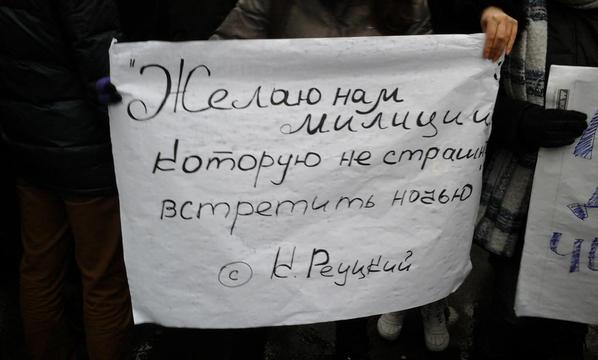 "Желаю нам
милиции,
которую не страшн
встретить ночью
© К. Реуцкий